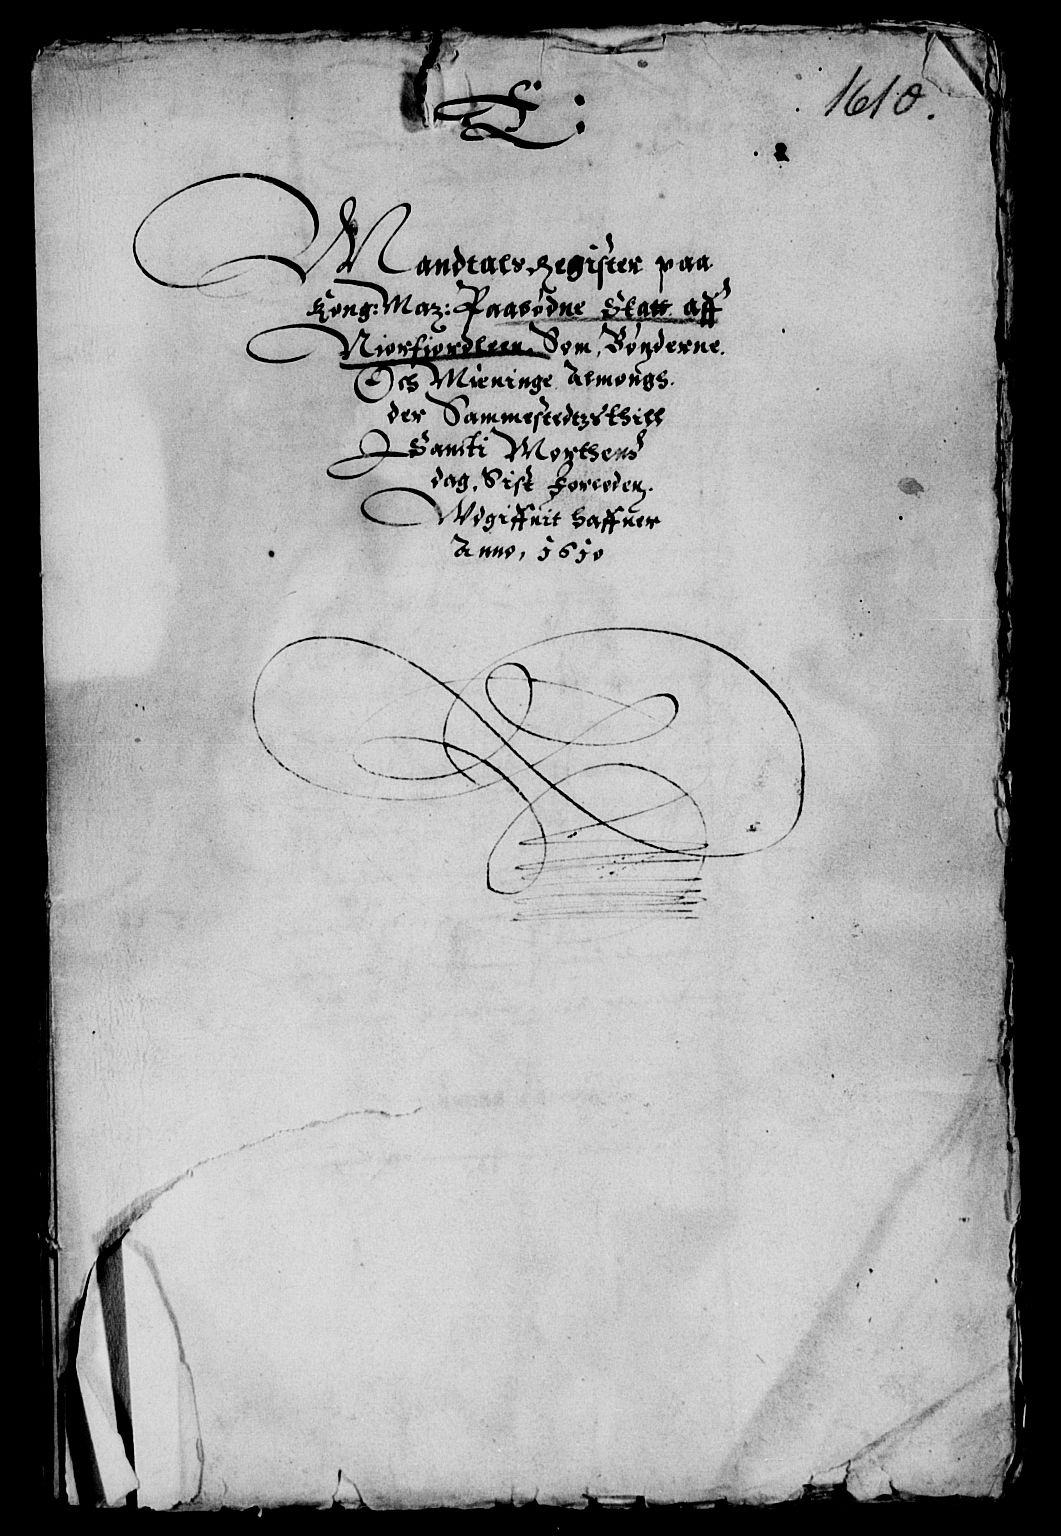 1610.
E:
Mandtals Register paa
Kong: Maz: Paabödne Skatt aff
Niorfiordleen, Som, Bönderne.
Och Mieninge Almongs.
der Sammestedtz thill
Sancti Morthens
dag, Sist forleden.
Wdgiffuit haffuer
Anno, 1610